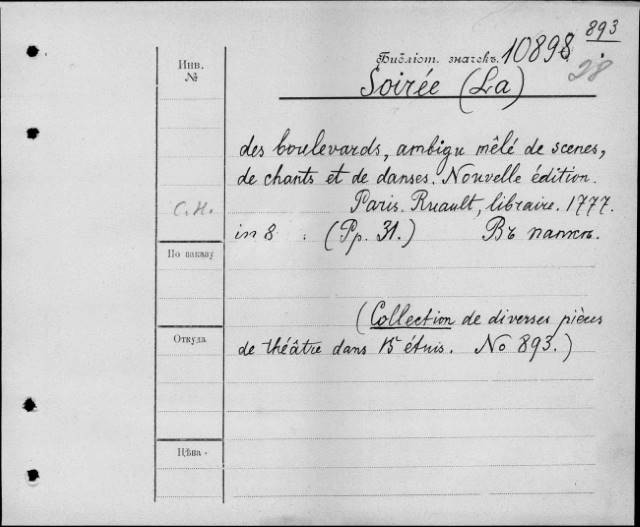 893
Библіот. значекъ. 10898.
28
Инв.
№
Soirée (La)
des boulevards, ambigu mêlé de scenes,
de chants et de danses. Nouvelle édition.
С. Н.
Paris. Ruault, libraire. 1777.
in 8 : (Pp. 31.) Въ папкѣ.
По шкапу
(Collection de diverses pièces
Откуда
de théâtre dans 15 étuis. No 893.)
Цѣна